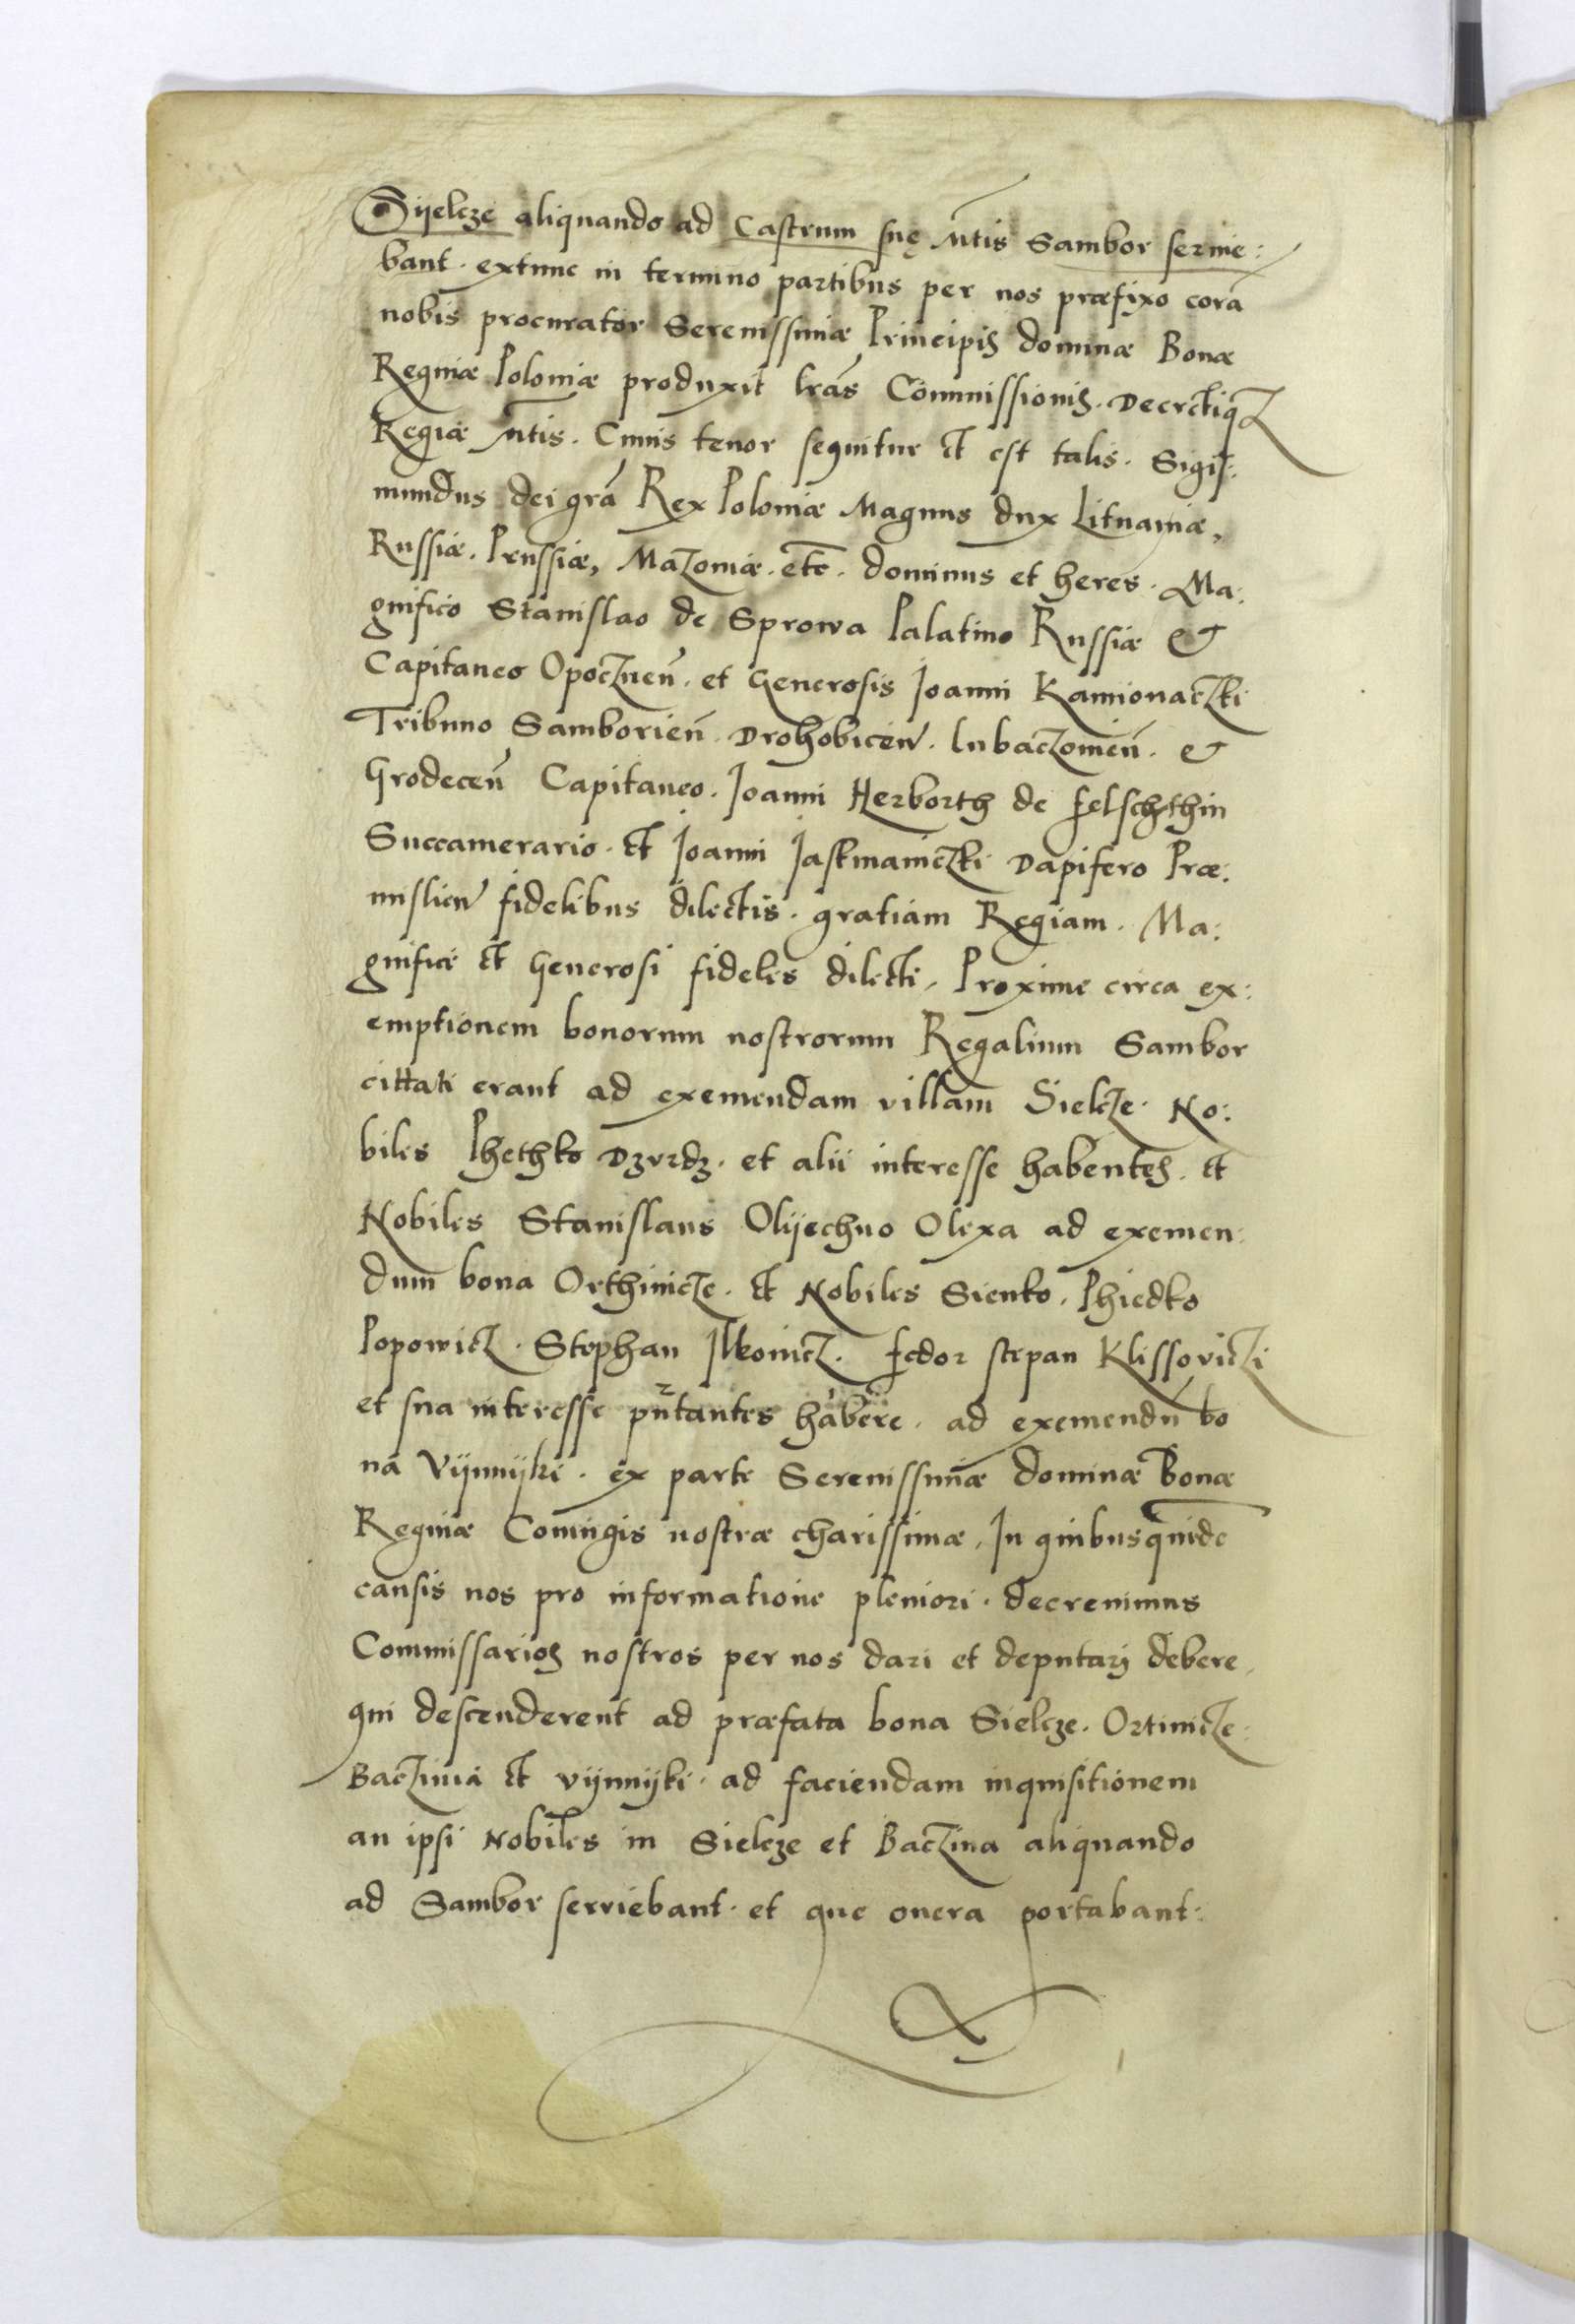 Sijelcze aliquando ad Castrum suę Mtis Sambor servie:
bant. extunc in termino partibus per nos præfixo corā
nobis procurator Serenissimæ Principis dominæ Bonæ
Reginæ Poloniæ produxit lrās Commissionis. Decretiqz
Regiæ Mtis. Cuius tenor sequitur et est talis. Sigis:
mundus dei grā Rex Poloniæ Magnus dux Lituaniæ,
Russiæ. Prussiæ, Mazoviæ. etc. dominus et heres. Ma:
gnifico Stanislao de Sprowa Palatino Russiæ &
Capitaneo Opocznen̄. et Generosis Joanni Kamionaczki
Tribuno Samborien̄. Drohobicen̄. lubaczovien̄. &
Grodecen̄ Capitaneo. Joanni Herborth de felschthin
Succamerario. et Joanni Jasmaniczki Dapifero Præ:
mislien̄ fidelibus dilectis. gratiam Regiam. Ma:
gnifici et Generosi fideles dilecti, Proxime circa ex:
emptionem bonorum nostrorum Regalium Sambor
cittati erant ad exemendam villam Sielcze. No:
biles Phethko Dzurdz. et alii interesse habentes. et
Nobiles Stanislaus Olijechno Olexa ad exemen:
dum bona Orthinicze. et Nobiles Sienko, Phiedko
Popowicz. Stephan Ilkovicz. fedor stepan Klissoviczi
et sua interesse pn̄tantes habere. ad exemendū bo
na Vijnnijki. ex parte Serenissimæ dominæ Bonæ
Reginæ Coniugis nostræ charissimæ, In quibusquidē
causis nos pro informatione pleniori. decrevimus
Commissarios nostros per nos dari et deputarj debere,
qui descenderent ad præfata bona Sielcze. Ortinicze:
Baczina et vijnnijki. ad faciendam inquisitionem
an ipsi Nobiles in Sielcze et Baczina aliquando
ad Sambor serviebant. et que onera portabant: